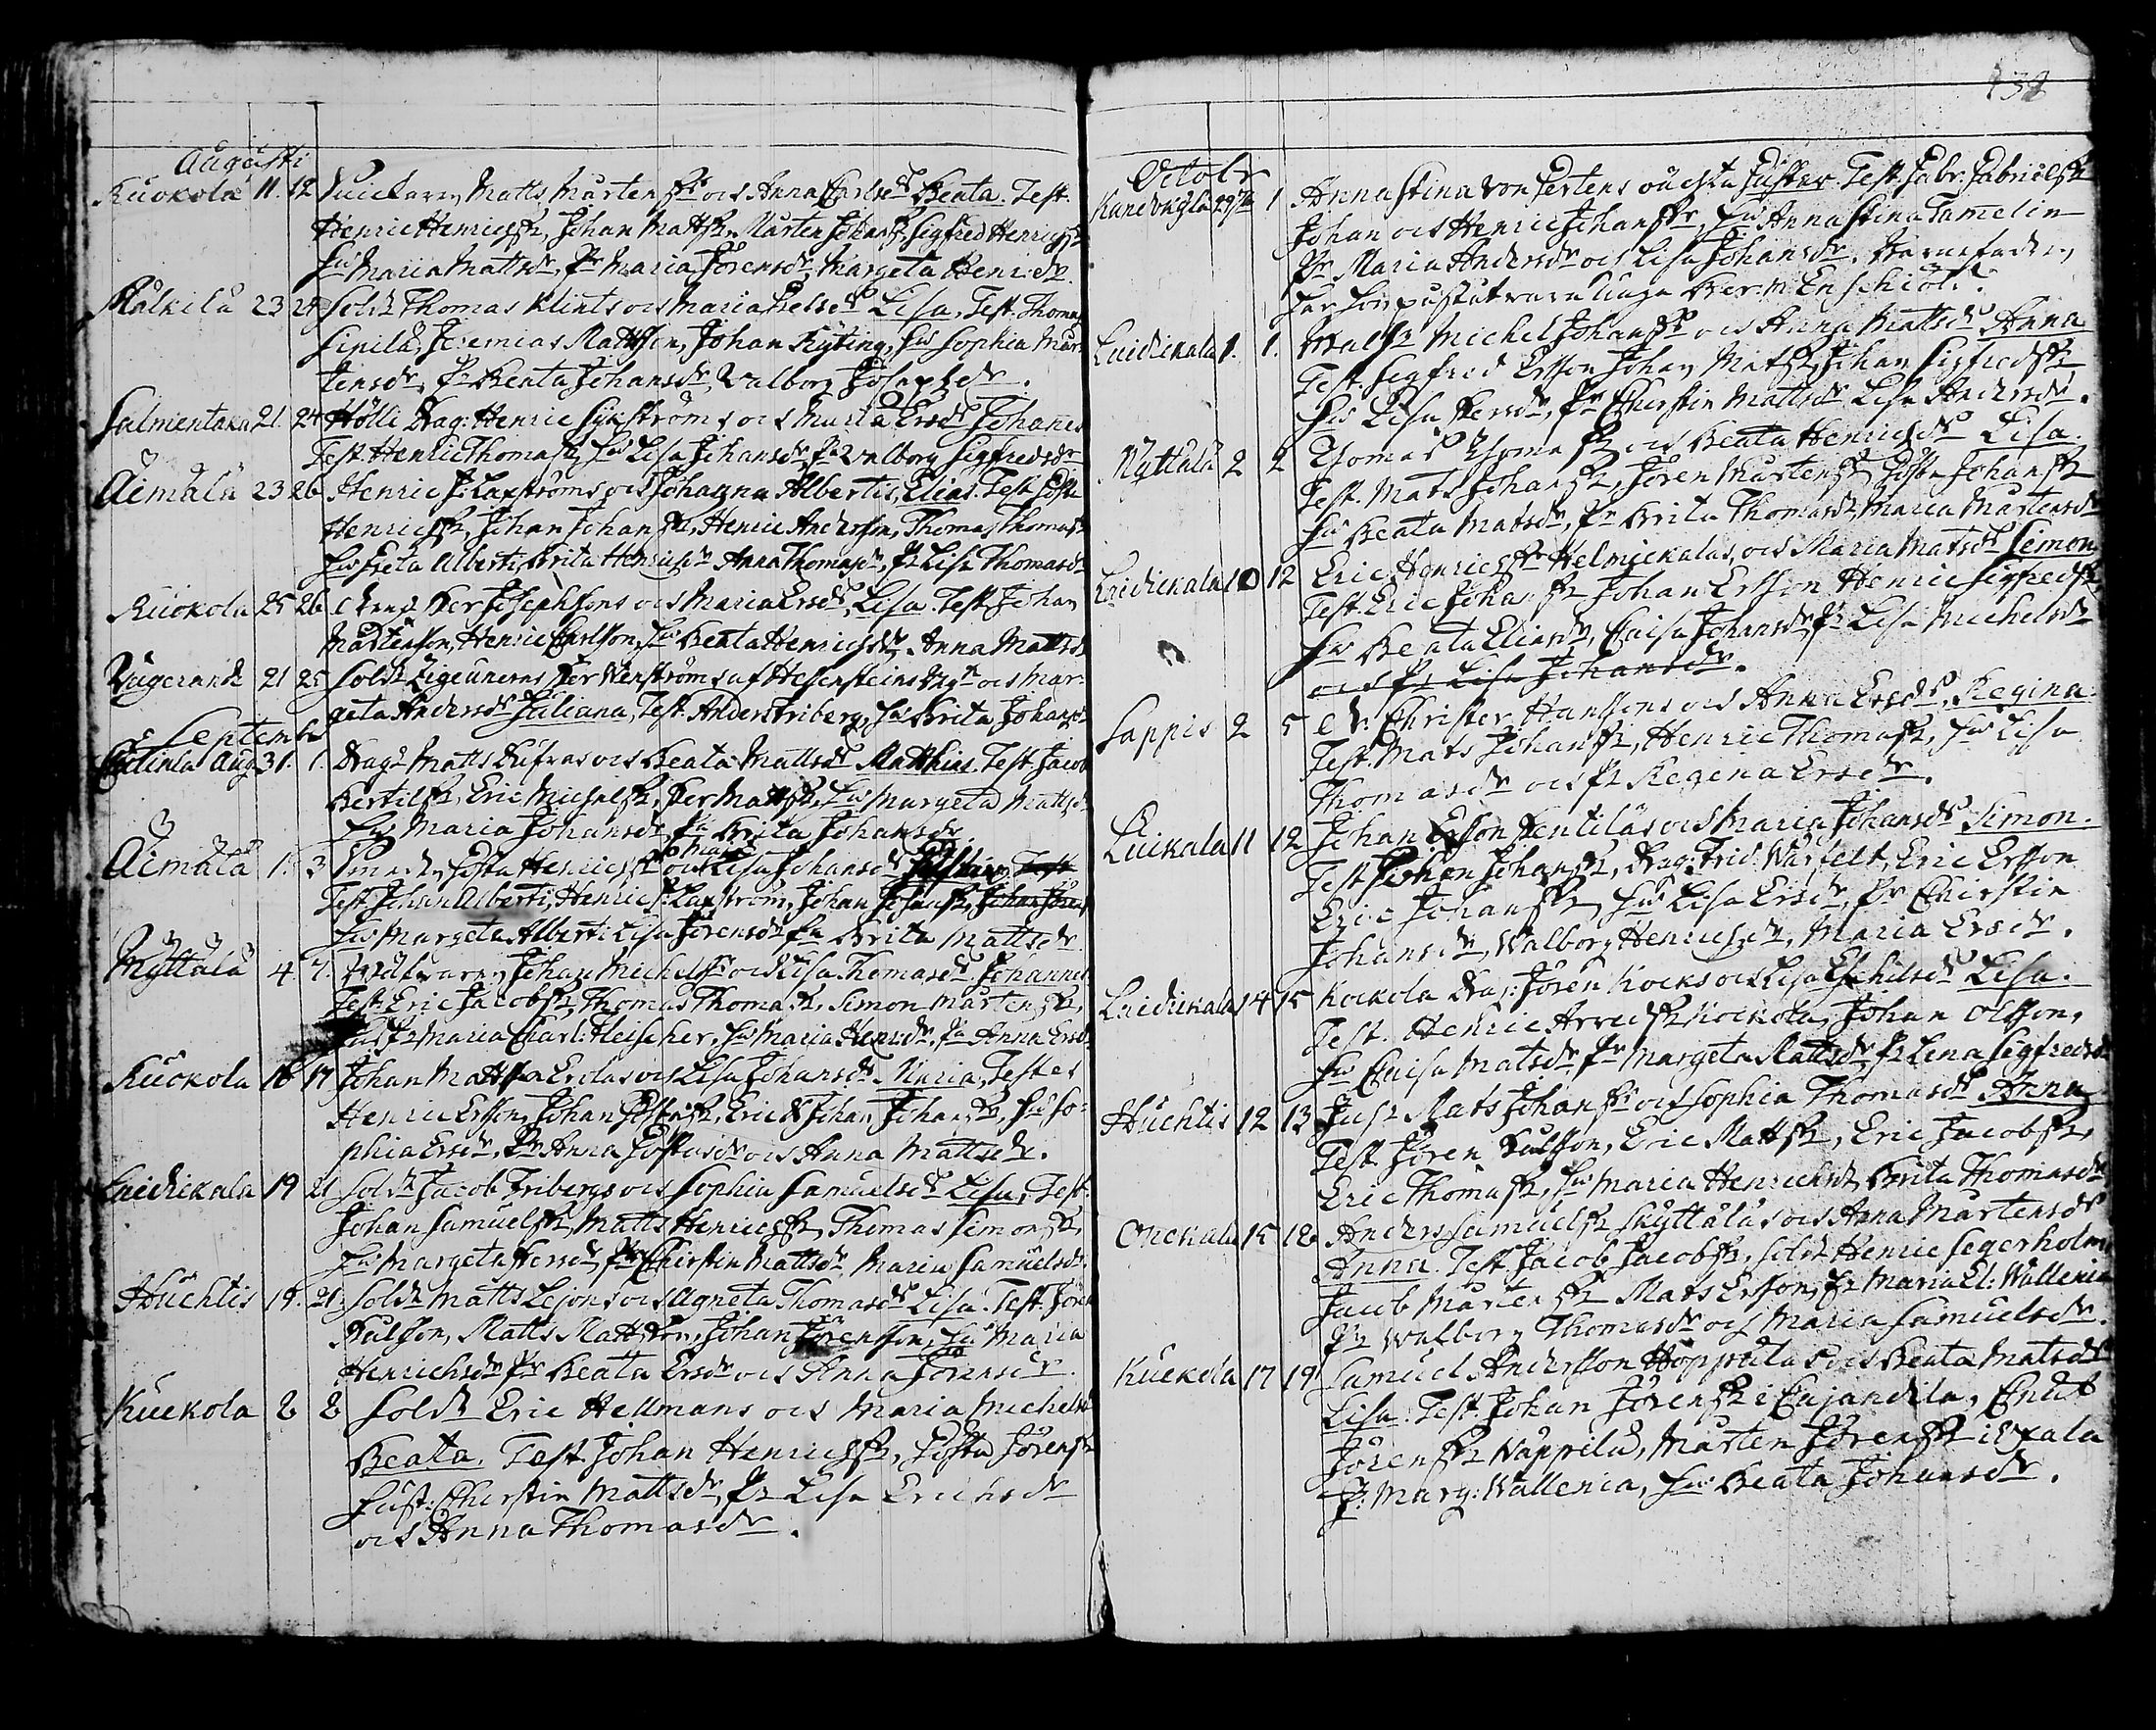 Augusti
Kuokola 11. 12 Matts Mårtenss: ocs Anna Carlsd: Beata. Test.
Henric Henricss, Johan Mattss, Mårten Johanss Sigfred Henricss
Hu Maria Mattsdr, Pr Maria Jörensdr, Margeta Henr:dr.
Kålkila 23 24 Sold: Thomas Klints ocs Maria Lisa, Test. Thomas
Sipilä, Jeremias Mattsson, Johan Kyting, Hu Sophia Mår-
tensdr, Pr Beata Johansdr, Valborg Josephsdr.
Salmentaka 21. 24 Hölli Drag: Henric ocs Maria Ersd: Johannes
Test. Henric Thomass, Hu Lisa Johansdr, Pr Valborg Sigfredsdr
Äimälä 23 26 Henric J: Laxströms ocs Johanna Albertis, Elias. Test. Gösta
Henricss, Johan Johanss, Henric Andersson, Thomas Thomass
Hu Greta Alberti, Brita Henricsdr Anna Thomasdr, Pr Lisa Thomasdr
Kuokola 25 26 Per Josephsons ocs Maria Ersd:, Lisa. Test. Johan
Mårtensson, Henric Carlsson, Hu Beata Henricsdr. Anna Mattsdr
21 25 Sold: Zigeunerns Per Wenströms af Hessensteins Rgt: ocs Mar-
geta Andersd: Juliana, Test. Anders Friberg, Hu Brita Johansdr
Septemb
Aug 31. 1. Drag: Matts Dufvas ocs Beata Mattsd: Matthias. Test. Jacob
Bertilss, Eric Michelss, Per Mattss, Hu Margeta Mattsdr
Hu Maria Johansdr Pr Brita Johansdr.
Maria
Äimälä 1. 3 Gösta Henricss: ocs Lisa Johansd: Test
Test. Johan Alberti, Henric J: Laxström, Johan Johanss, Johan Jörenss
Hu Margeta Alberti Lisa Jörensdr Pr Brita Mattsdr.
Myttälä 4. 7. Johan Michelss: ocs Lisa Thomasd: Johannes
Test. Eric Jacobss, Thomas Thomass, Simon Mårtenss,
Maria Charl: Fleischer, Hu Maria Henrdr, Pr Anna Ersdr
Kuokola 16 17 Johan Mattss: Erolas ocs Lisa Johansd: Maria, Testes
Henric Ersson, Johan Göstass, Eric & Johan Johanss, Hu So-
phia Ersdr, Pr Anna Göstasdr ocs Anna Mattsdr.
Laidickala 19 21 Sold: Jacob Fribergs ocs Sophia Samuelsd: Lisa, Test.
Johan Samuelss, Matts Henricss, Thomas Simonss,
Hu Margeta Persdr, Pr Cherstin Mattsdr, Maria Samuelsdr.
Huchtis 19. 21. Sold: Matts Lejons ocs Agneta Thomasd: Lisa. Test. Jören
Pulsson, Matts Mattsson, Johan Jörensson, Hu Maria
Henrichsdr Pr Beata Ersdr ocs Anna Jörensdr.
Kuokola 2 2 Sold: Eric Hellmans ocs Maria Michelsd
Beata. Test. Johan Henricss, Gösta Jörenss
Hust: Cherstin Mattsdr, Pr Lisa Erichsdr
ocs Anna Thomasdr.
138
Octobr
29 1 Anna Stina von Pertens oächta Gustav. Test. Gabr: Gabrielss
Johan ocs Henric Johanss:, Hu Anna Stina Tamelin
Pr Maria Andersdr ocs Lisa Johansdr. Barnefadern
Laidickala 1. 1. Michel Johanss: ocs Anna Mattsd: Anna
Test. Sigfred Ersson Johan Matss, Johan Sigfredss
Hu Lisa Persdr, Pr Cherstin Mattsdr Lisa Andersdr.
Myttälä 2 2 Thomas Thomass: ocs Beata Henricsd: Lisa.
Test. Mats Johanss, Jören Mårtenss, Gösta Johanss
Hu Beata Matsdr, Pr Brita Thomasdr Maria Mårtensdr
Laidickala 10 12 Eric Henricss: Helmickalas, ocs Maria Matsd: Simon
Test. Eric Johanss Johan Ersson Henric Sigfredss
Hu Beata Eliasdr, Caisa Johansdr, Pr Lisa Michelsdr
ocs Pr Lisa Johansdr.
Lappis 2 5 Dr: Christer Hanssons ocs Anna Ersd: Regina.
Test. Mats Johanss, Henric Thomass, Hu Lisa
Thomasdr ocs Pr Regina Ersdr.
Luikala 11 12 Johan Ersson Pentiläs ocs Maria Johansd: Simon.
Test. Johan Johanss, Drag: Frid: Warfelt, Eric Ersson
Eric Johanss, Hu Lisa Ersdr, Pr Cherstin
Johansdr, Walborg Henricsdr, Maria Ersdr.
Laidickala 14 15 Kockola Drag: Jören Kocks ocs Lisa Eschilsd: Lisa.
Test. Henric Arvedss Kockola, Johan Olsson,
Hu Caisa Matsdr Pr Margeta Mattsdr, Pr Lena Sigfredsdr
Huchtis 12 13 Mats Johanss: ocs Sophia Thomasd: Anna
Test. Jören Pulsson, Eric Mattss, Eric Jacobss,
Eric Thomass, Hu Maria Henrichsdr, Brita Thomasdr
Onckala 15 18 Anders Samuelss Skyttäläs ocs Anna Mårtensd:
Anna. Test. Jacob Jacobss, Sold: Henric Segerholm,
Jacob Mårtenss Mats Ersson, Pr Maria El: Wallenia
Pr Walborg Thomasdr ocs Maria Samuelsdr.
Kuokola 17 19 Samuel Andersson Hoppulas ocs Beata Matsd:
Lisa. Test. Johan Jörenss i Cajandila, Cnut
Jörenss Wäpprilä, Mårten Jörenss i Exala
J: Marg: Wallenia, Hu Beata Johansdr.